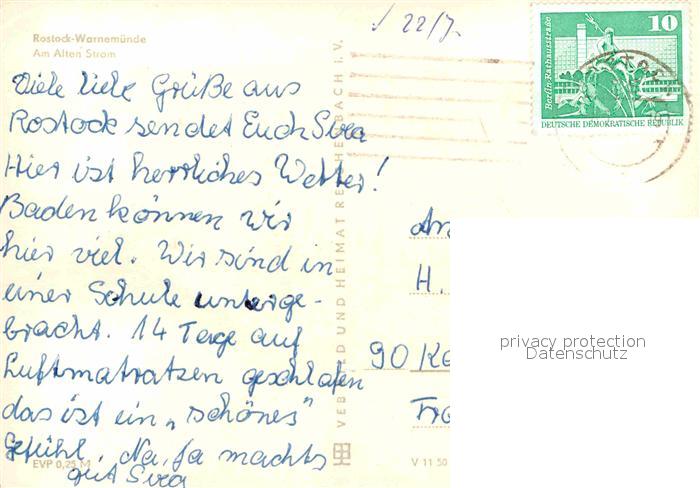 Rostock-Warnemünde
Am Alten Strom
22/7.
Berlin-Rathausstraße
10
DEUTSCHE DEMOKRATISCHE REPUBLIK
Viele liebe Grüße aus
Rostock sendet Euch Sira
Hier ist herrliches Wetter!
Baden können wir
hier viel. Wir sind in
einer Schule unterge-
bracht. 14 Tage auf
Luftmatratzen geschlafen
das ist ein „schönes"
Gefühl. Na, ja machts
gut Sira
An
H.
90 Ka
privacy protection
Datenschutz
VEB BILD UND HEIMAT REICHENBACH I. V.
EVP 0,25 M
V 11 50